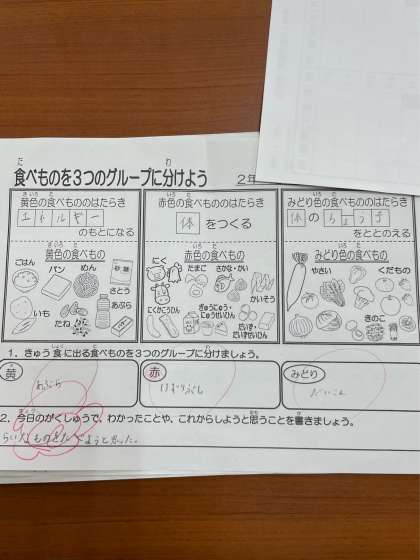 食べものを3つのグループに分けよう 2年
黄色の食べもののはたらき
エネルギー
のもとになる
赤色の食べもののはたらき
体をつくる
みどり色の食べもののはたらき
体のちょうし
をととのえる
黄色の食べもの
ごはん パン めん
さとう
いも
たね
あぶら
赤色の食べもの
にく
たまご
さかな・かい
かいそう
にくかこうひん
ぎゅうにゅう・にゅうせいひん
だいず・だいずせいひん
みどり色の食べもの
やさい
くだもの
きのこ
1.きゅう食に出る食べものを3つのグループに分けましょう。
黄
あぶら
赤
みどり
だいこん
2.今日のがくしゅうで、わかったことや、これからしようと思うことを書きましょう。
ようと思った。